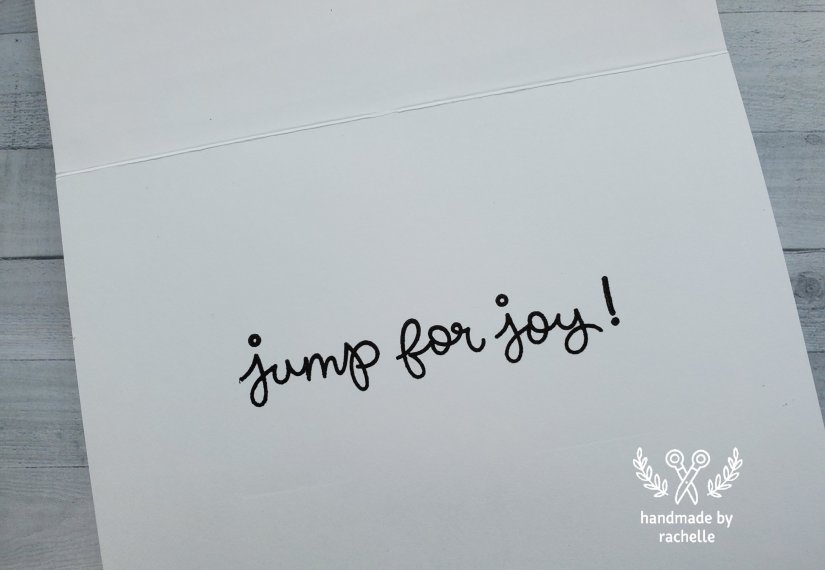 jump for joy!
handmade by
rachelle